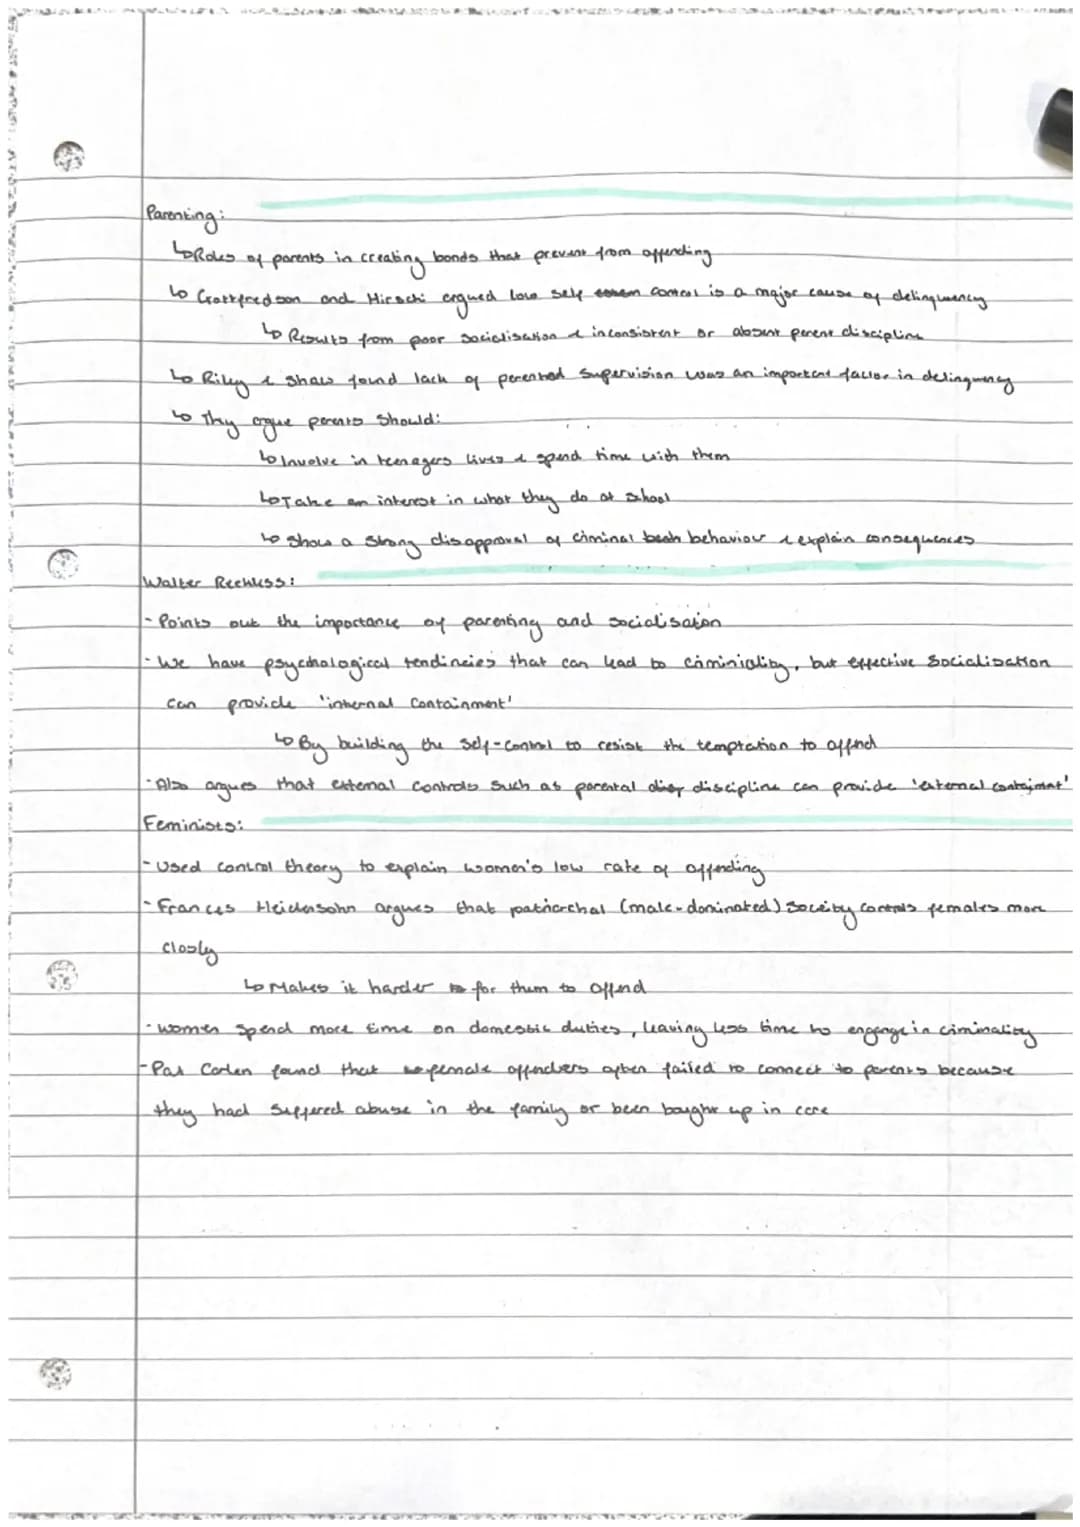 Parenting:
↳ Roles of parents in creating bonds that prevent from offending
↳ Gottfredson and Hirschi argued low self control is a major cause of delinquency
↳ Results from poor socialisation & inconsistent or absent parent discipline
↳ Riley & Shaw found lack of parental supervision was an important factor in delinquency
↳ They argue parents should:
↳ Involve in teenagers lives & spend time with them
↳ Take an interest in what they do at school
↳ Show a strong disapproval of ciminal behaviour & explain consequences
Walter Reckless:
- Points out the importance of parenting and socialisaion
- We have psychological tendincies that can lead to criminiality, but effective Socialisation
can provide 'internal containment'
↳ By building the self-control to resist the temptation to offend
- Also argues that external controls such as parental discipline can provide 'external containment'
Feminists:
- Used control theory to explain women's low rate of offending
- Frances Heidensohn argues that patriarchal (male-dominated) society controls females more
closly
↳ Makes it harder for them to offend
- Women spend more time on domestic duties, leaving less time to engage in ciminality
- Pat Carlen found that female offenders often failed to connect to parents because
they had suffered abuse in the family or been bought up in care